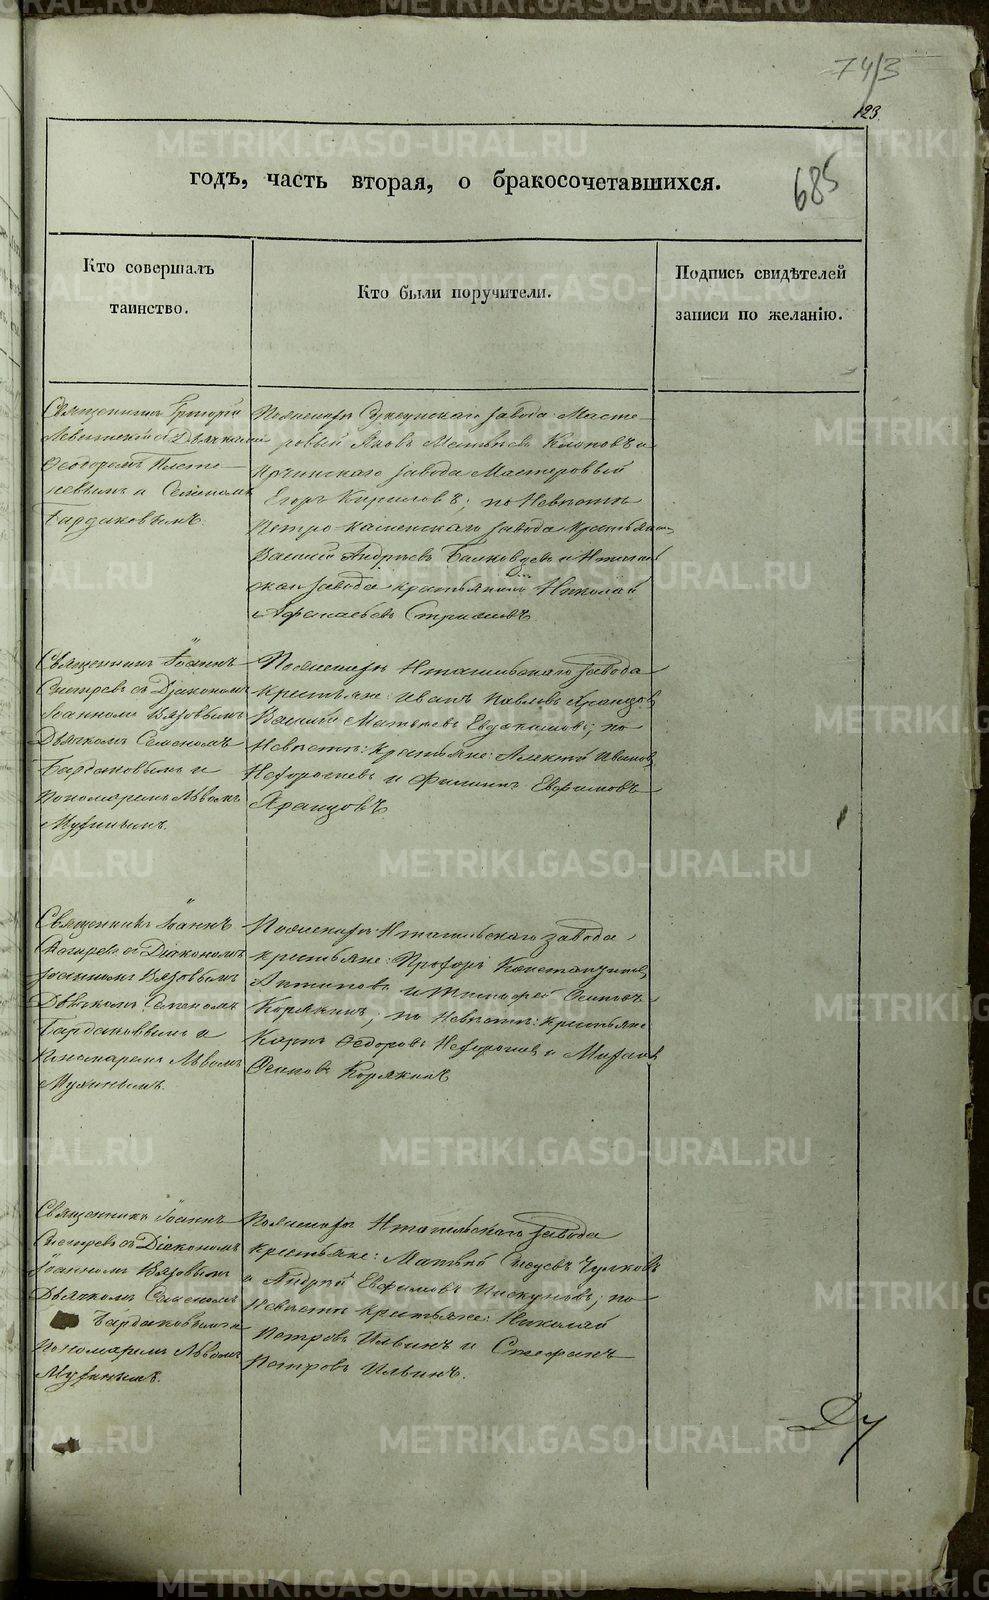 74/3
123.
годъ, часть вторая, о бракосочетавшихся.
685
Кто совершалъ
таинство.
Кто были поручители.
Подпись свидѣтелей
записи по желанію.
Священникъ Григорій
Левитскій съ Дьячками
Ѳеодоромъ
и Семеномъ
Бардаковымъ.
По женихѣ завода Масте-
ровый Яковъ Матвѣевъ Клоповъ и
завода Мастеровый
Егоръ Кириловъ; по Невѣстѣ
Петро-каменскаго завода крестьянинъ
Василій Андреевъ и Нтагиль
скаго завода крестьянинъ Николай
Афанасьевъ
Священникъ Іоаннъ
съ Діакономъ
Іоанномъ Вязовымъ
Дьячкомъ Семеномъ
Бардаковымъ и
Пономаремъ Львомъ
По женихѣ Нтагильскаго завода
крестьяне: Иванъ Павловъ Аранцовъ,
Василій Матвѣевъ Евдокимовъ; по
Невѣстѣ: крестьяне: Алексѣй Ивановъ
и Филиппъ Евфимовъ
Аранцовъ
Священникъ Іоаннъ
съ Діакономъ
Іоанномъ Вязовымъ
Дьячкомъ Семеномъ
Бардаковымъ и
Пономаремъ Львомъ
По женихѣ Нтагильскаго завода
крестьяне: Прохоръ Константиновъ
Антиповъ и Тимофей Осиповъ
Корякинъ; по Невѣстѣ: крестьяне
Карпъ Ѳедоровъ и
Осиповъ Корякинъ
Священникъ Іоаннъ
съ Діакономъ
Іоанномъ Вязовымъ
Дьячкомъ Семеномъ
Бардаковымъ и
Пономаремъ Львомъ
По женихѣ Нтагильскаго завода
крестьяне: Матвѣй Чулковъ
и Андрей Евфимовъ Пискуновъ; по
Невѣстѣ крестьяне: Николай
Петровъ Ильинъ и Стефанъ
Петровъ Ильинъ.
METRIKI.GASO-URAL.RU